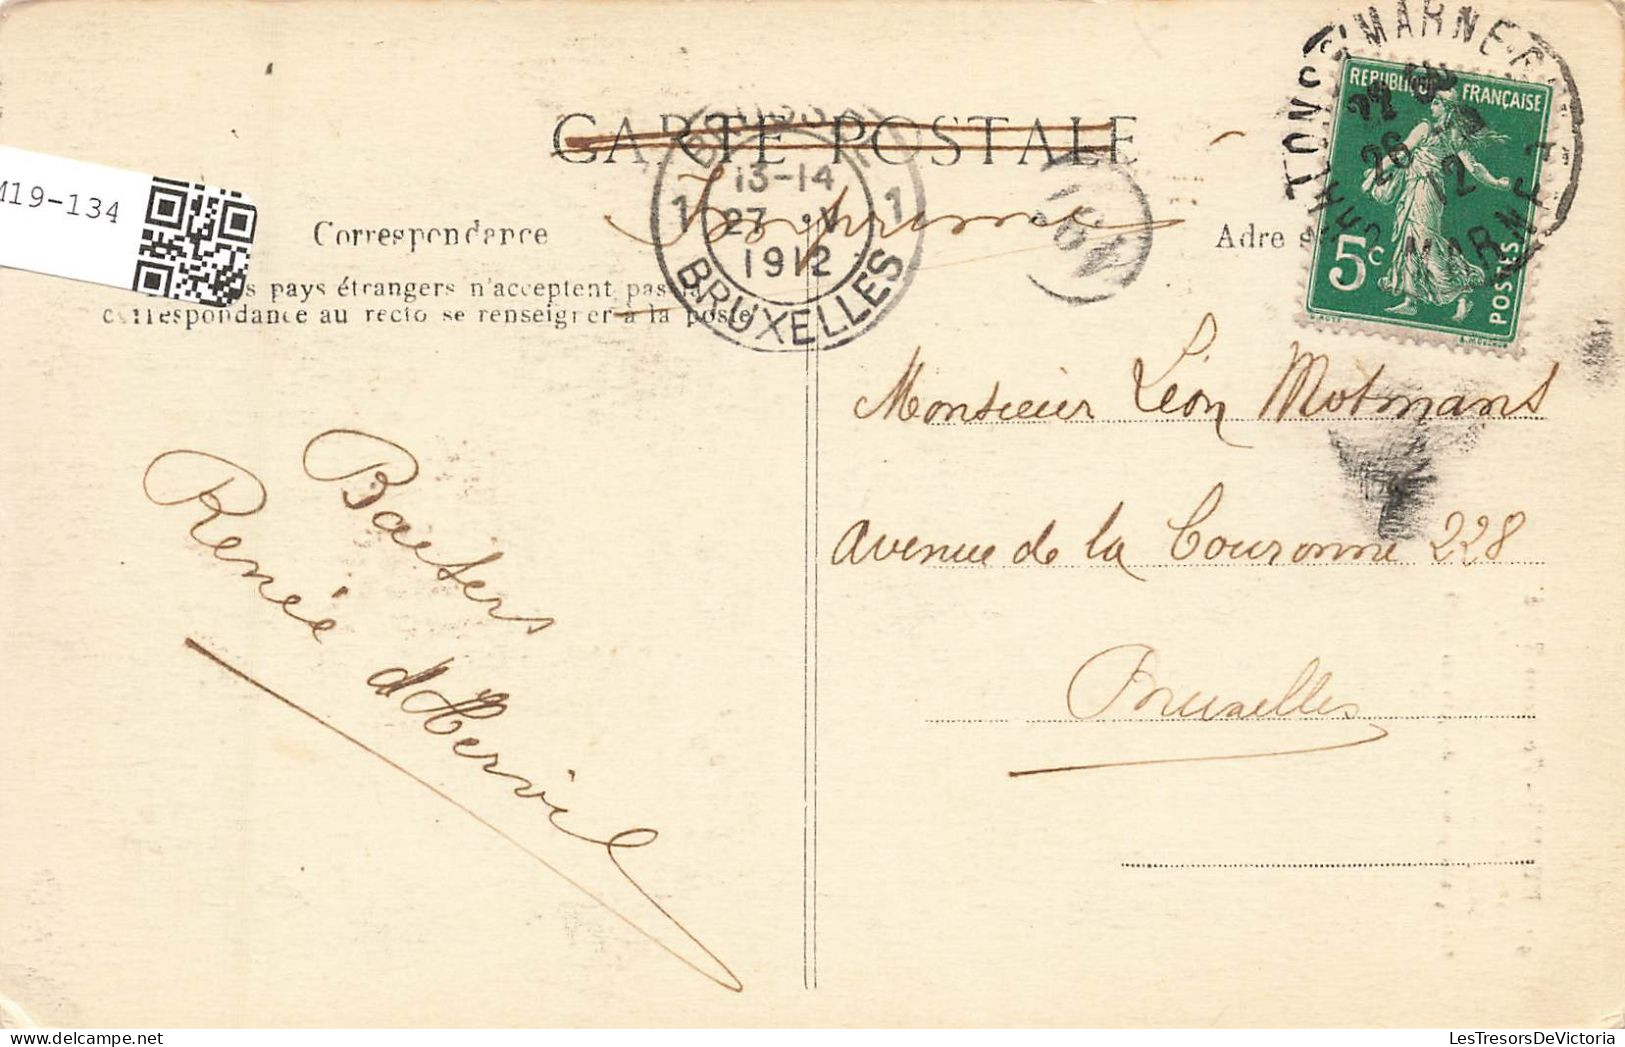 CARTE POSTALE
Imprimé
M19-134
Correspondance
Adre
pays étrangers n'acceptent pas la
correspondance au recto se renseigner à la poste
13-14
1 27 V 1
1912
BRUXELLES
S/MARNE
26
12
MARNE
REPUBLIQUE FRANÇAISE
5c
POSTES
Monsieur Léon Motmans
Avenue de la Couronne 228
Bruxelles
Baeters
Renée d'Hervil
LesTresorsDeVictoria